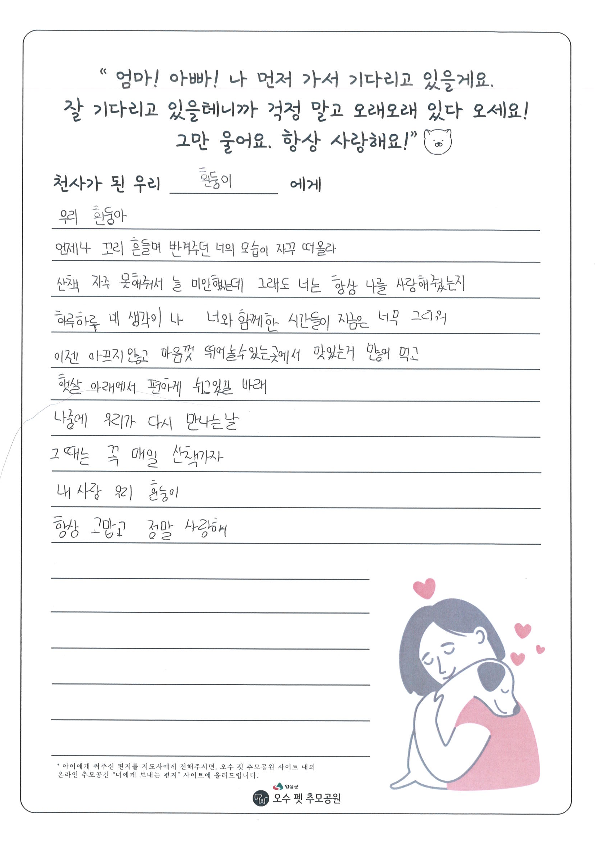 “ 엄마! 아빠! 나 먼저 가서 기다리고 있을게요.
잘 기다리고 있을테니까 걱정 말고 오래오래 있다 오세요!
그만 울어요. 항상 사랑해요!”
천사가 된 우리 흰둥이 에게
우리 흰둥아
언제나 꼬리 흔들며 반겨주던 너의 모습이 자꾸 떠올라
산책 자주 못해줘서 늘 미안했는데 그래도 너는 항상 나를 사랑해주었는지
하루하루 네 생각이 나 너와 함께한 시간들이 지금은 너무 그리워
이젠 아프지않고 마음껏 뛰어놀수있는곳에서 맛있는거 많이 먹고
햇살 아래에서 편하게 쉬고있길 바래
나중에 우리가 다시 만나는날
그때는 꼭 매일 산책가자
내 사랑 우리 흰둥이
항상 고맙고 정말 사랑해
* 아이에게 써주신 편지를 지도사에게 전해주시면, 오수 펫 추모공원 사이트 내의
온라인 추모공간 "너에게 보내는 편지" 사이트에 올려드립니다.
임실군
오수 펫 추모공원